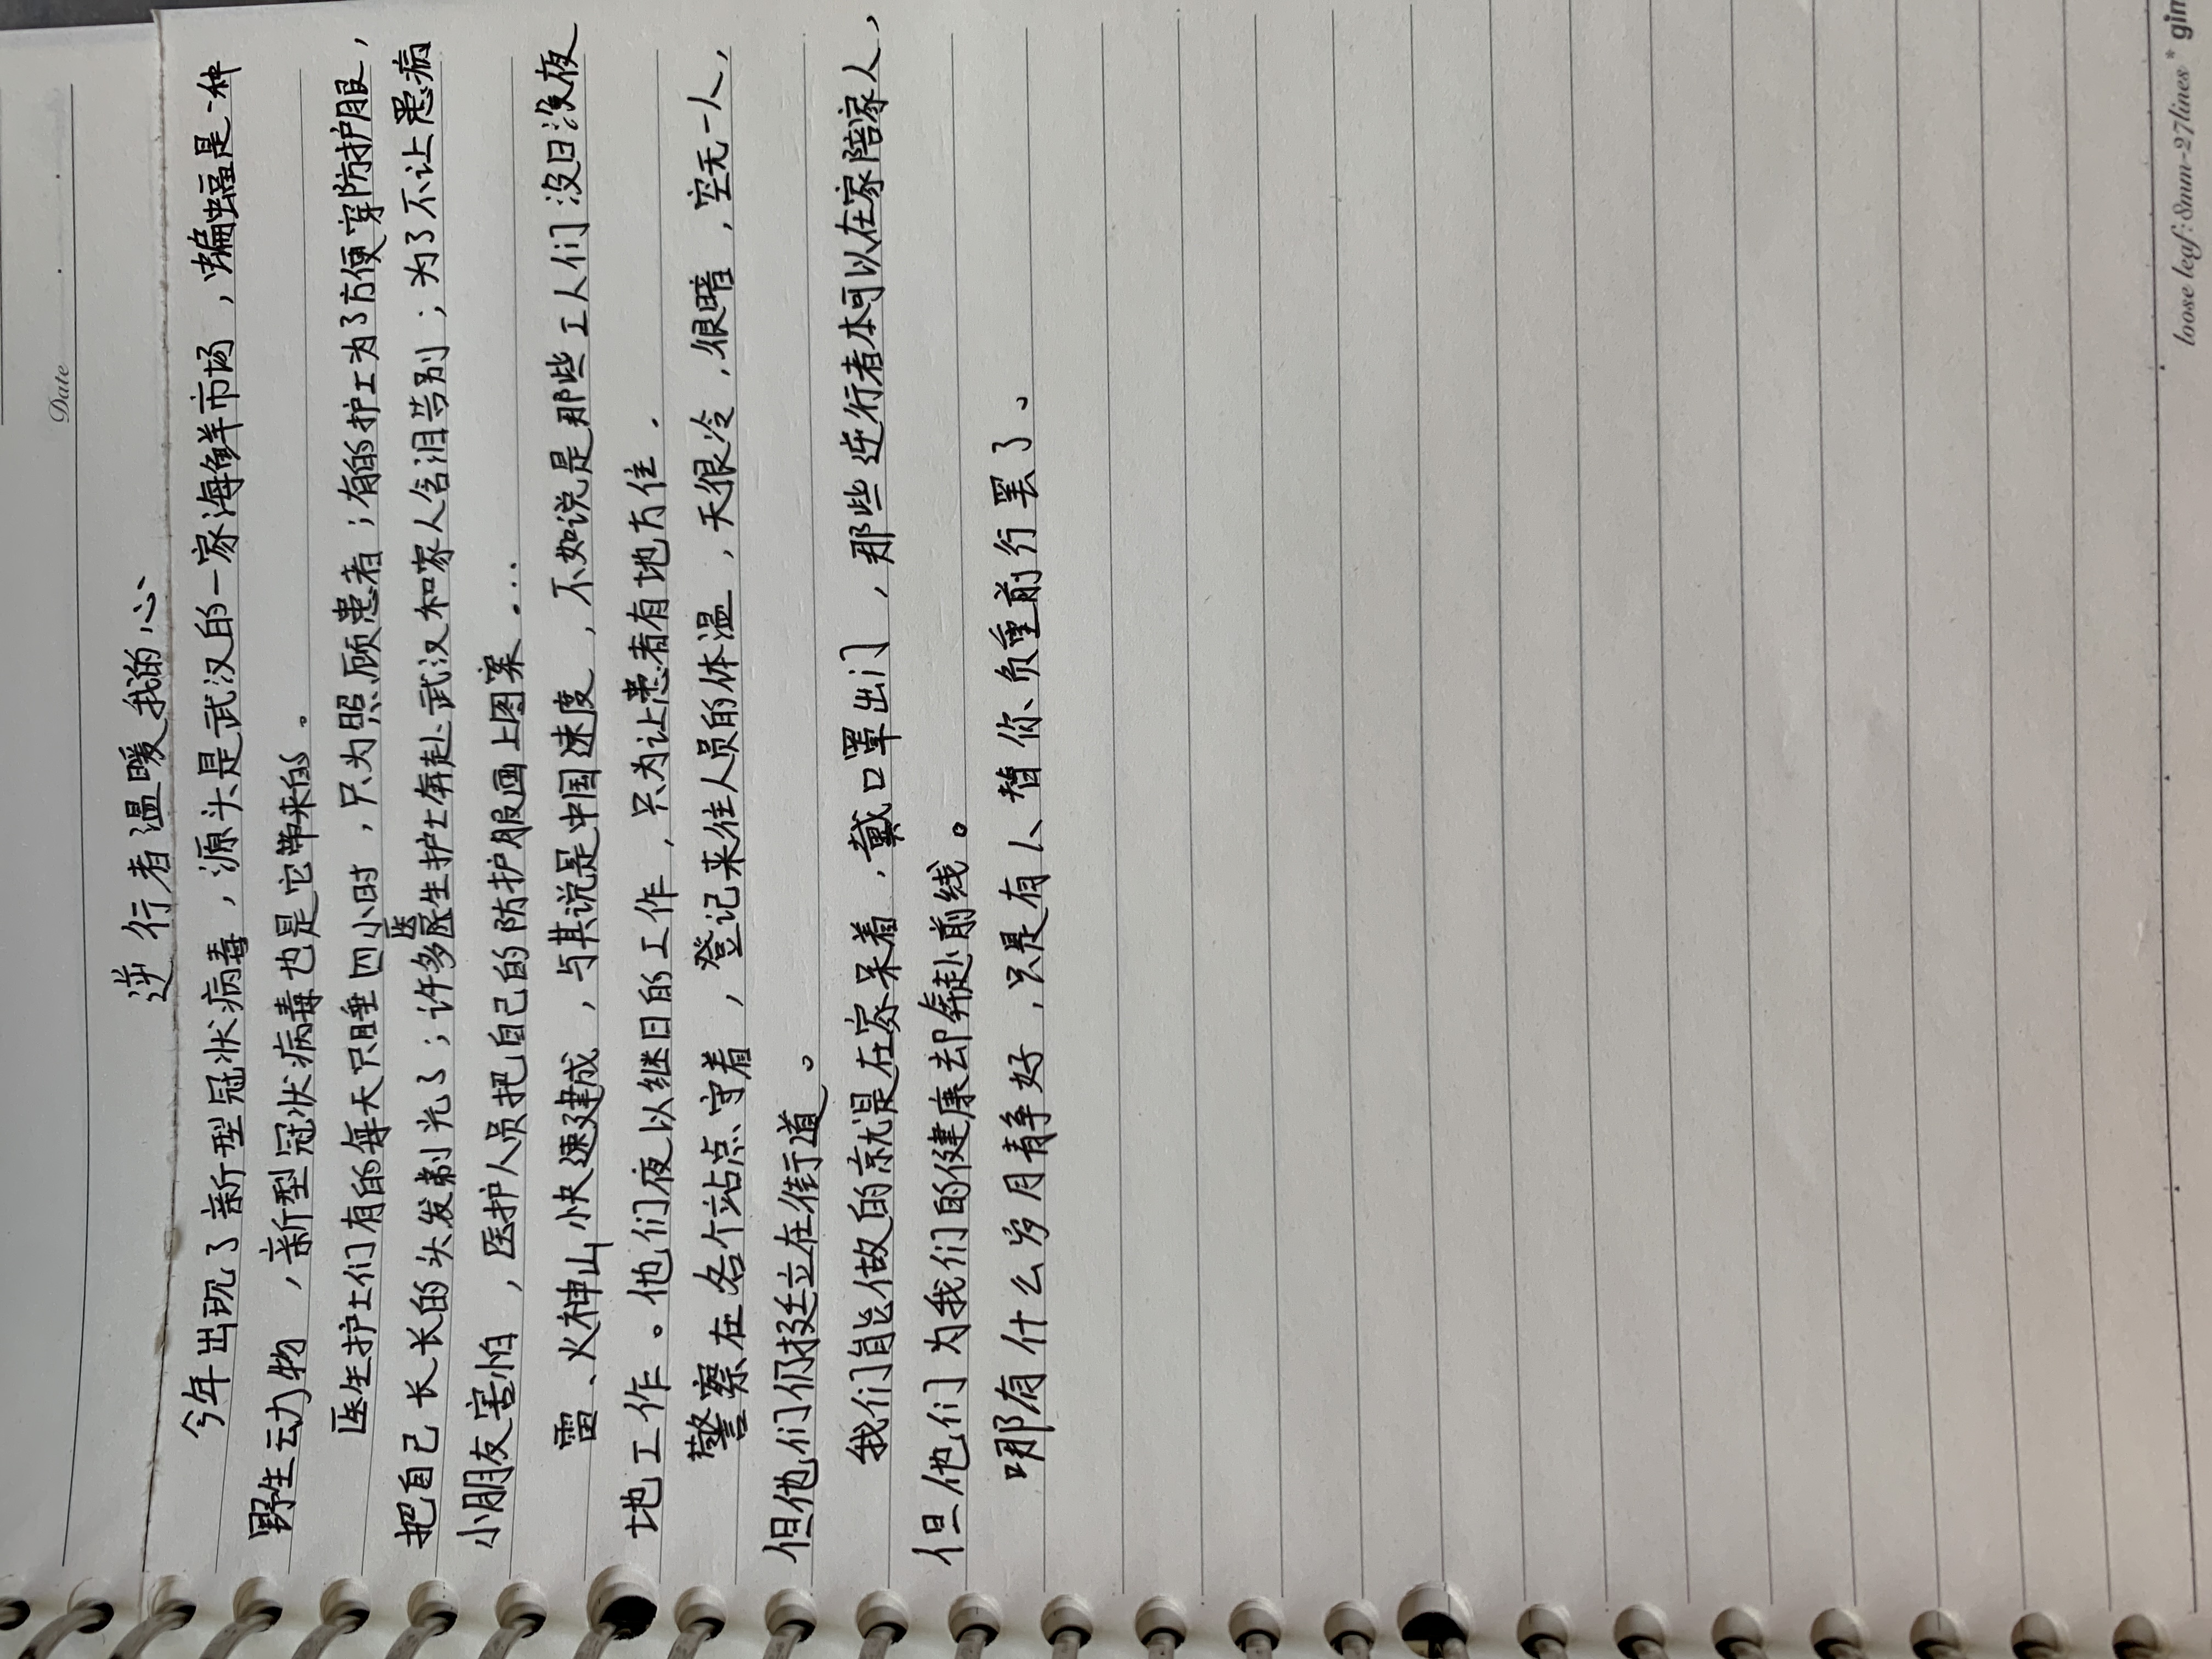 Date
逆行者温暖我的心
今年出现了新型冠状病毒，源头是武汉的一家海鲜市场，蝙蝠是一种
野生动物，新型冠状病毒也是它带来的。
医生护士们有的每天只睡四小时，只为照顾患者；有的护工为了方便穿防护服，
把自己长长的头发剃光了；许多医生护士奔赴武汉和家人含泪告别；为了不让患病
小朋友害怕，医护人员把自己的防护服画上图案...
雷、火神山快速建成，与其说是中国速度，不如说是那些工人们没日没夜
地工作。他们夜以继日的工作，只为让患者有地方住.
警察在各个站点守着，登记来往人员的体温，天很冷，很暗，空无一人，
但他们仍挺立在街道。
我们能做的就是在家呆着，戴口罩出门，那些逆行者本可以在家陪家人，
但他们为我们的健康去却奔赴前线。
哪有什么岁月静好，只是有人替你负重前行罢了、
loose leaf:8mm-27lines * gin